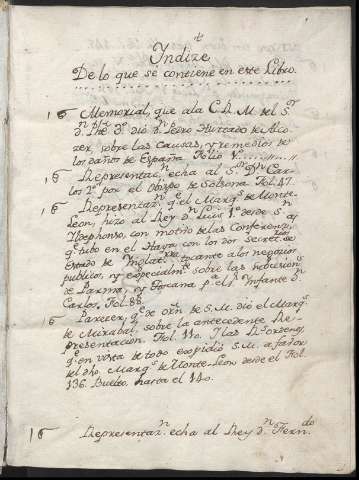 Yndize
De lo que se contiene en este Libro.
16 Memorial, que a la C. R. M. del S.r
d.n Phe 3.o dió d.n Pedro Hurtado de Alco-
zer, sobre las Causas, y remedios de
los daños de España. Folio 1.
16 Representaz.n echa al S.r D.n Car-
los 2.o por el Obispo de Solsona Fol. 47.
16 Representaz.n q.e el Marq.s de Monte-
Leon, hizo al Rey d.n Luis 1.o desde S.n
Yldephonso, con motivo de las Conferenz.s
q.e tubo en el Haya con los dos Secret.os de
Estado de Ynglat.rra tocante a los negocios
publicos, y especialm.te sobre las subcesion.s
de Parma, y Toscana p.a el S.r Ynfante D.n
Carlos. Fol. 88.
16 Parezer, q.e de orn. de S. M. dió el Marq.s
de Mirabal, sobre la antecedente Re-
presentacion. Fol. 110. Y las Rs. ordenes
q.e en vista de todo expidió S. M. a favor
del dho. Marq.s de Monte-Leon desde el Fol.
136. Buelto. hasta el 140.
16 Representaz.n echa al Rey d.n Fern.do